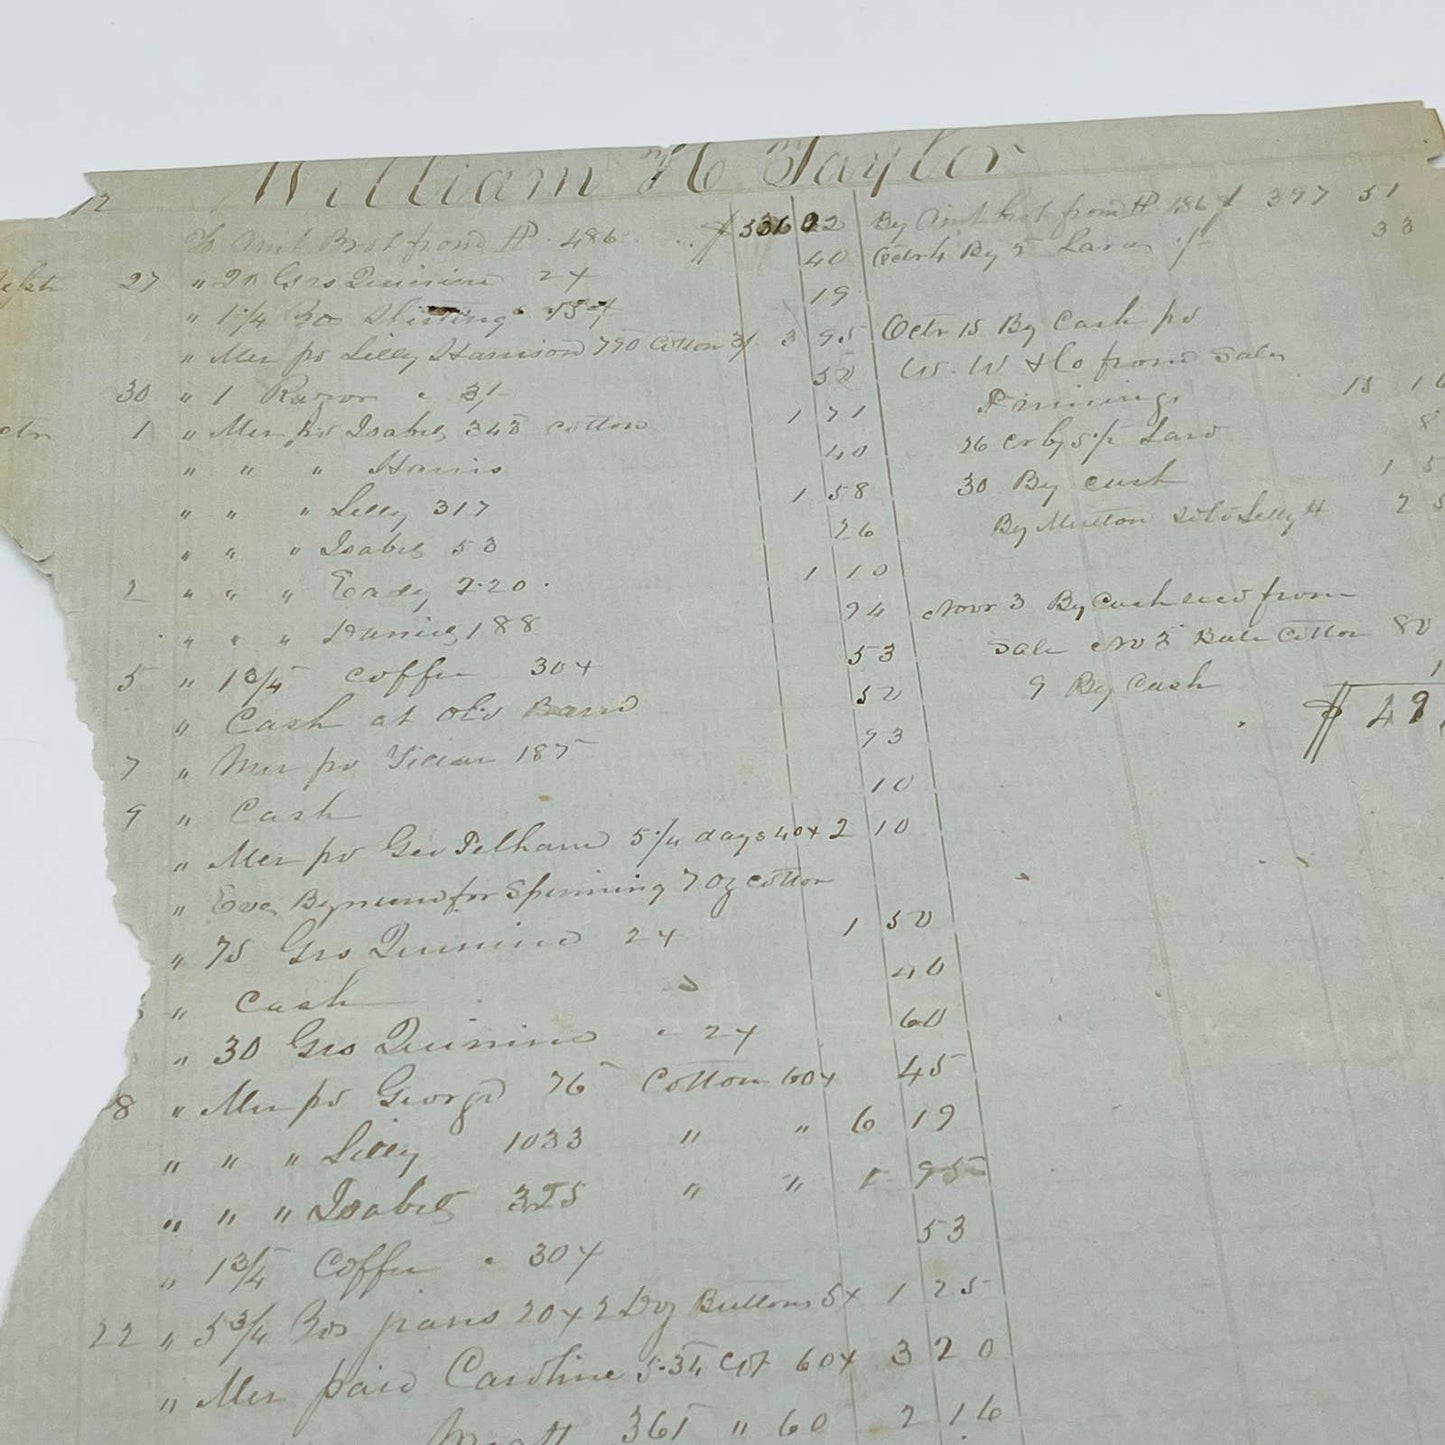 12
William H Taylor
To Amt Brot from P. 486 $ 336 02
27 " 20 Grs Quinine 2¢ 40
" 1 1/4 yds Shirting 15¢ 19
" Mer pd Lilly Harrison 790 Cotton 3 95
30 " 1 Razor 50
1 " Mer pd Isabel 343 cotton 1 71
" " " Harris 40
" " " Lilly 317 1 58
" " " Isabel 53 26
2 " " " Eady 2.20 1 10
" " " Daniel 188 94
5 " 1 3/4 coffee 30¢ 53
" Cash at Old Band 50
7 " Mer pd 187 93
9 " Cash 10
" Mer pd Geo Pelham 5 1/4 days 40¢ 2 10
" Eva Bynum for Spinning 7 oz cotton
" 75 Grs Quinine 2¢ 1 50
" Cash 40
" 30 Grs Quinine " 2¢ 60
8 " Mer pd George 76 Cotton 60¢ 45
" " " Lilly 1033 " " 6 19
" " " Isabel 325 " " 1 95
" 1 3/4 Coffee " 30¢ 53
22 " 5 3/4 yds jeans 20¢ 2 Doz Buttons 5¢ 1 25
" Mer paid Caroline 5.34 Cot 60¢ 3 20
365 " 60 2 16
By Amt brot from P 486 $ 397 51
Octr 4 By 5 Lard 33
Octr 15 By Cash pd
W. W & Co from Sale
Pinnings 15
26 Cr by Lard 8
30 By cash 1 5
By Mutton sold Lilly 4 2 5
Novr 3 By Cash recd from
Sale No 3 Bale Cotton 80
9 By Cash 1
$ 49